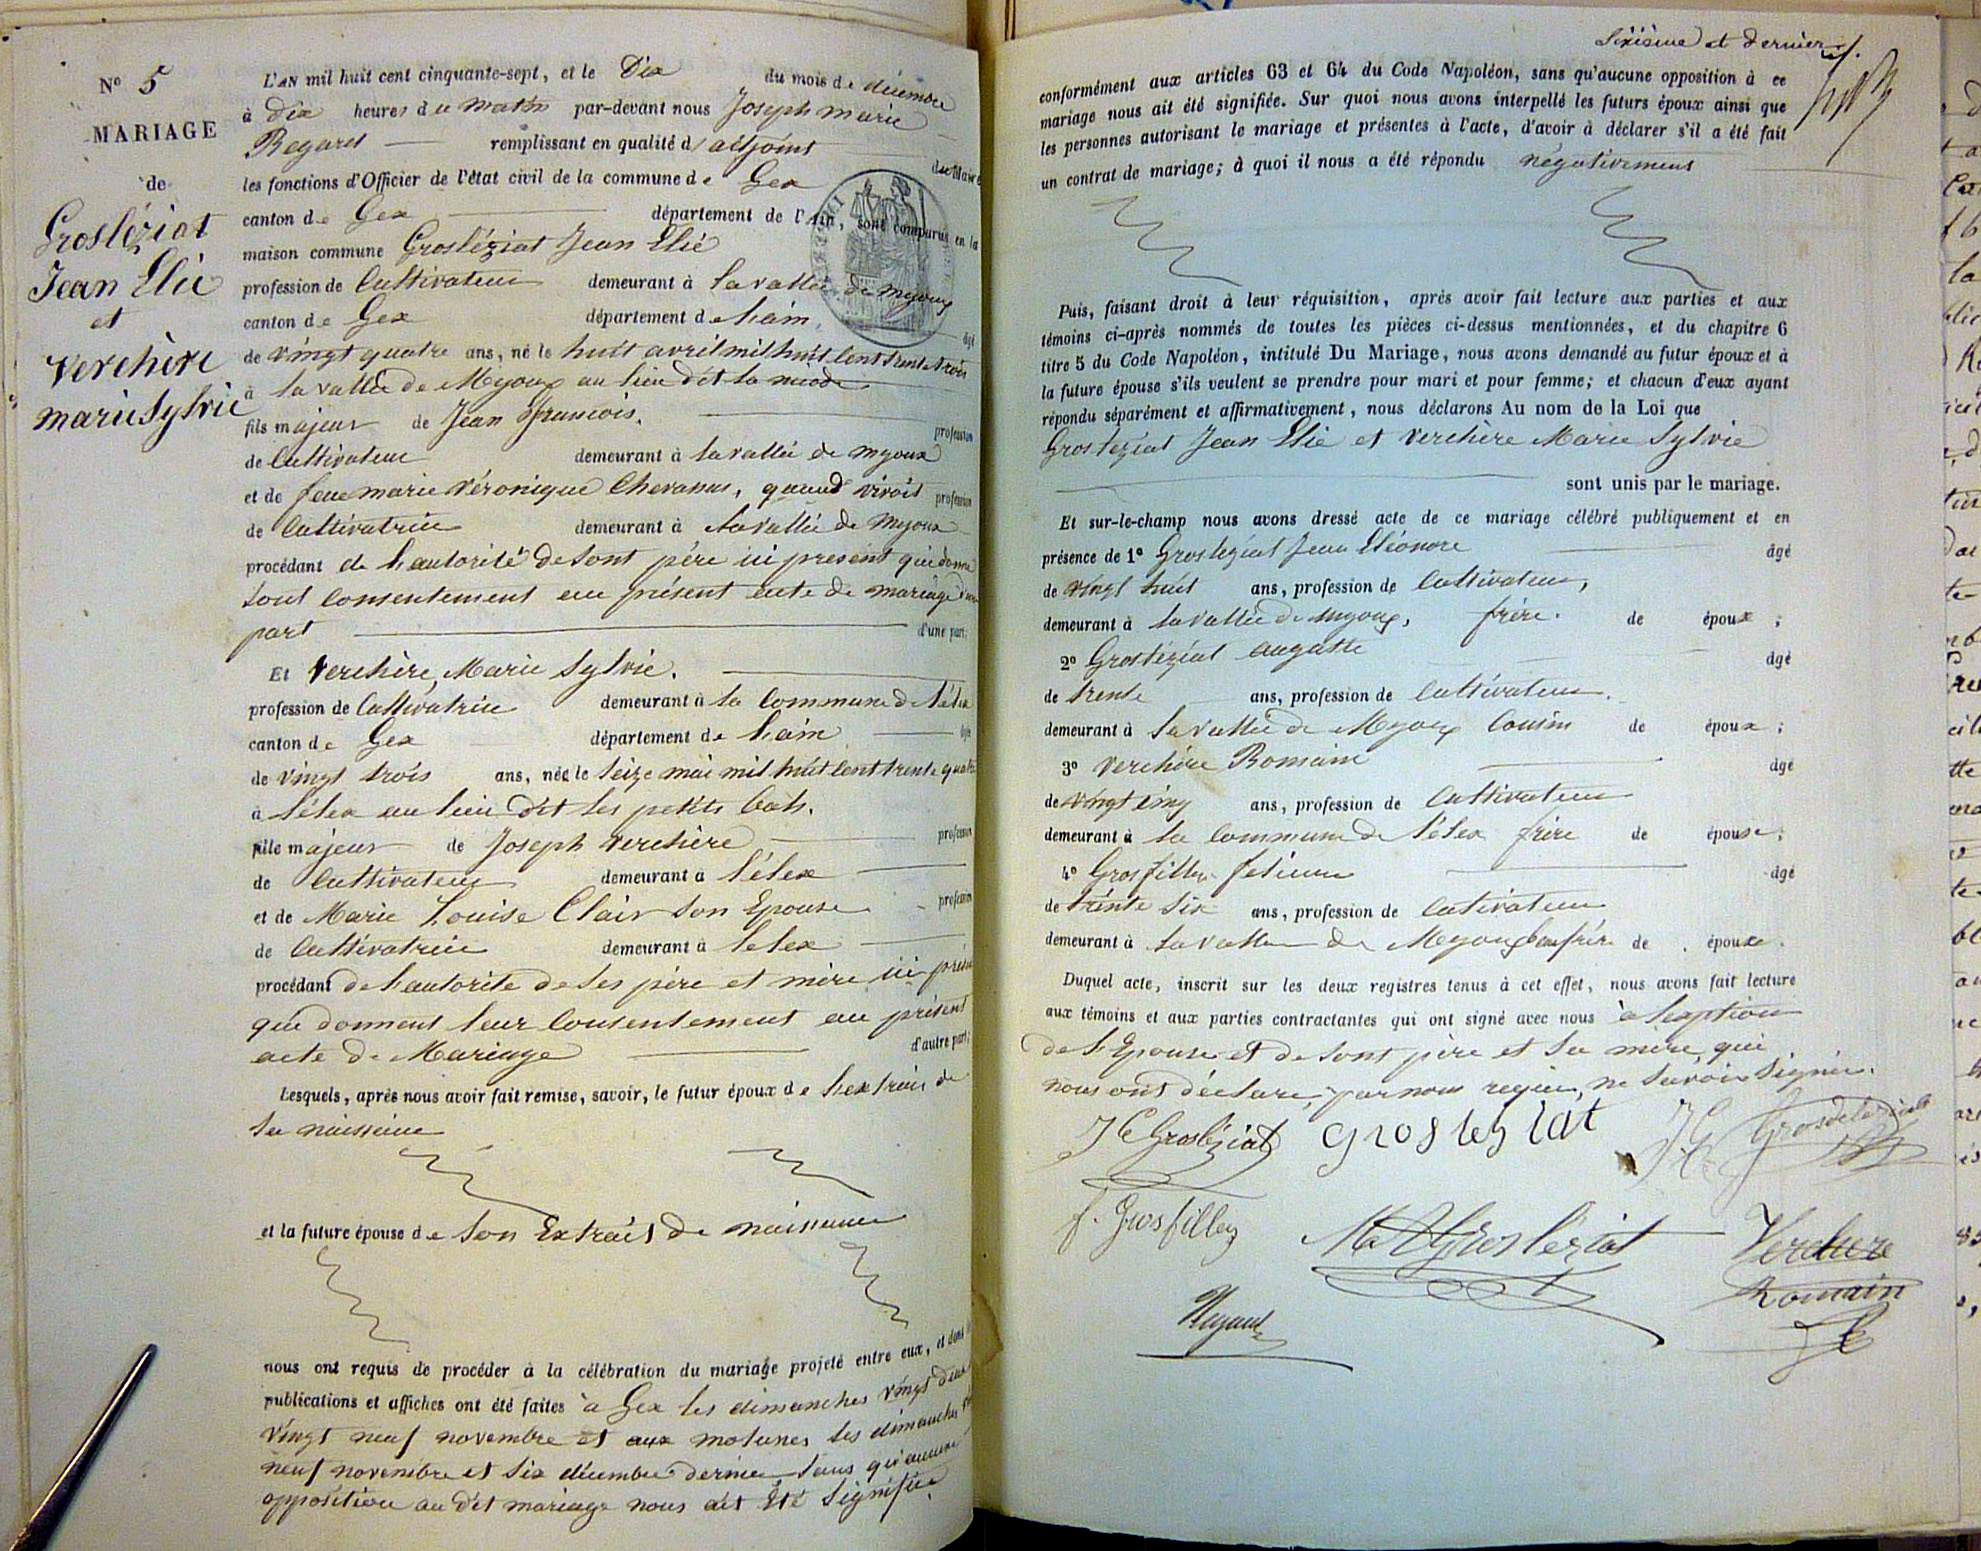 N° 5
MARIAGE
de
Grosléziat
Jean Elie
et
Verchère
marie Sylvie
L'AN mil huit cent cinquante-sept, et le Dix du mois de décembre
à dix heures du matin par-devant nous Joseph marie
Regard remplissant en qualité d'adjoint du Maire
les fonctions d'Officier de l'état civil de la commune de Gex
canton de Gex département de l'Ain, sont comparus en la
maison commune Grosléziat Jean Elie
profession de Cultivateur demeurant à Lavallée de mijoux
canton de Gex département de Lain, âgé
de vingt quatre ans, né le huit avril mil huit Cent trente trois
à Lavallée de Mijoux au lieu dit la
fils majeur de Jean françois, profession
de Cultivateur demeurant à Lavallée de mijoux
et de feue marie Véronique Chevassus, quand vivoit profession
de Cultivatrice demeurant à Lavallée de Mijoux
procédant de Lautorité de sont père ici présent qui donne
tout consentement au présent acte de mariage d'une
part d'une part;
Et Verchère, Marie Sylvie.
profession de Cultivatrice demeurant à la Commune de Lélex
canton de Gex département de Lain âgée
de vingt trois ans, née le Seize mai mil huit Cent trente quatre
à Lélex au lieu dit les petits
fille majeur de Joseph Verchère profession
de Cultivateur demeurant à Lélex
et de Marie Louise Clair son Epouse profession
de Cultivatrice demeurant à Lelex
procédant de Lautorité de ses père et mère ici présents
qui donnent leur Consentement au présent
acte de Mariage d'autre part;
Lesquels, après nous avoir fait remise, savoir, le futur époux de Lextrait de
Sa naissance
et la future épouse de Son Extrait de naissance
nous ont requis de procéder à la célébration du mariage projeté entre eux, et dont les
publications et affiches ont été faites à Gex les dimanches vingt deux
vingt neuf novembre et aux molunes les dimanches vingt
neuf novembre et Six décembre dernier Sans qu'aucune
opposition au dit mariage nous ait Eté Signifiée.
Sixième et dernier f.
conformément aux articles 63 et 64 du Code Napoléon, sans qu'aucune opposition à ce
mariage nous ait été signifiée. Sur quoi nous avons interpellé les futurs époux ainsi que
les personnes autorisant le mariage et présentes à l'acte, d'avoir à déclarer s'il a été fait
un contrat de mariage; à quoi il nous a été répondu négativement
Puis, faisant droit à leur réquisition, après avoir fait lecture aux parties et aux
témoins ci-après nommés de toutes les pièces ci-dessus mentionnées, et du chapitre 6
titre 5 du Code Napoléon, intitulé Du Mariage, nous avons demandé au futur époux et à
la future épouse s'ils veulent se prendre pour mari et pour femme; et chacun d'eux ayant
répondu séparément et affirmativement, nous déclarons Au nom de la Loi que
Grosléziat Jean Elie et Verchère Marie Sylvie
sont unis par le mariage.
Et sur-le-champ nous avons dressé acte de ce mariage célébré publiquement et en
présence de 1° Grosléziat Jean Eléonore âgé
de Vingt huit ans, profession de Cultivateur,
demeurant à Lavallée de mijoux, frère. de époux;
2° Groslézial auguste âgé
de trente ans, profession de Cultivateur.
demeurant à Lavallée de Mijoux Cousin de époux;
3° Verchère Romain âgé
de Vingt cinq ans, profession de Cultivateur
demeurant à La Commune de Lélex frère de épouse;
4° Grosfilley felicien âgé
de trente Six ans, profession de Cutivateur
demeurant à Lavallée de Mijoux beaufrère de époux.
Duquel acte, inscrit sur les deux registres tenus à cet effet, nous avons fait lecture
aux témoins et aux parties contractantes qui ont signé avec nous à Lexeption
de L'Epouse et de sont père et Sa mère, qui
nous ont déclaré, par nous requis, ne Savoir Signer.
J E Groslésiat grosleslat J E Grosdelezialt
f. Grosfilley M A Groslésiat Verchere
Romain
Regard